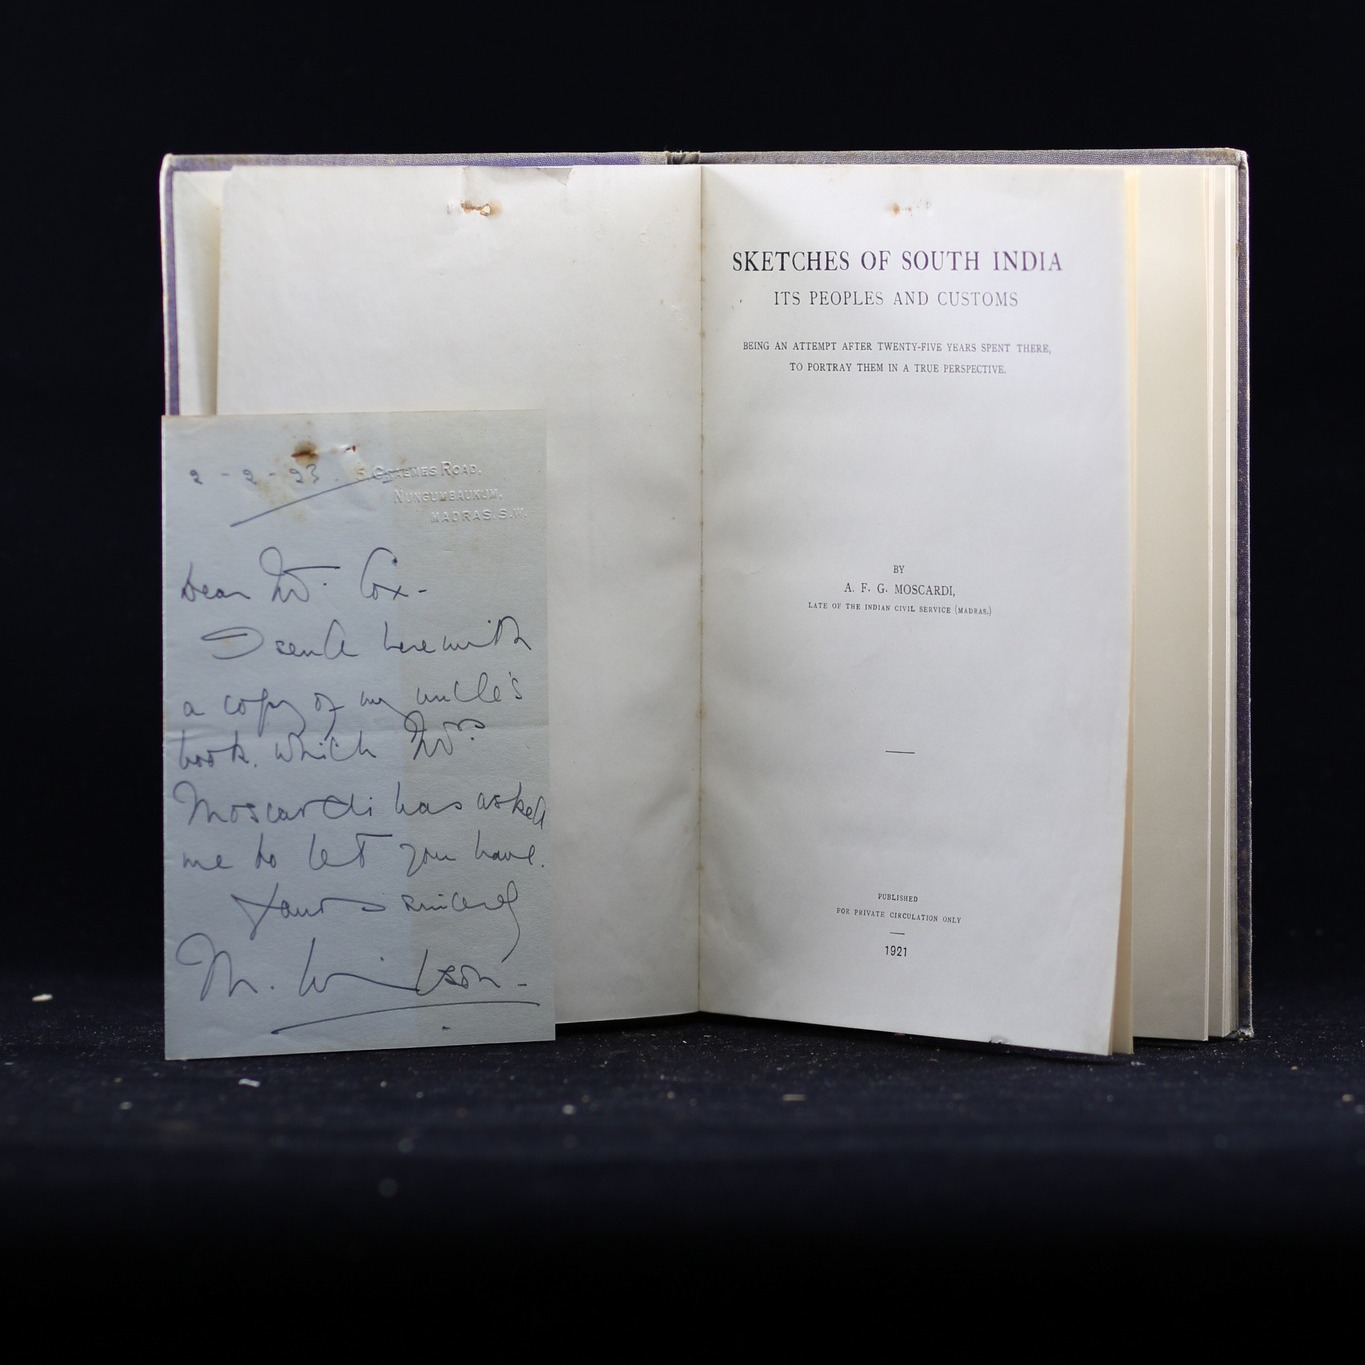 2-2-23.
5 Graemes Road,
Nungumbaukum,
Madras. S.W.
Dear Mr. Cox-
I send herewith
a copy of my uncle's
book. which Mrs.
Moscardi has asked
me to let you have.
Yours sincerely
M.
SKETCHES OF SOUTH INDIA
ITS PEOPLES AND CUSTOMS
BEING AN ATTEMPT AFTER TWENTY-FIVE YEARS SPENT THERE,
TO PORTRAY THEM IN A TRUE PERSPECTIVE.
BY
A. F. G. MOSCARDI,
LATE OF THE INDIAN CIVIL SERVICE (MADRAS.)
PUBLISHED
FOR PRIVATE CIRCULATION ONLY
1921